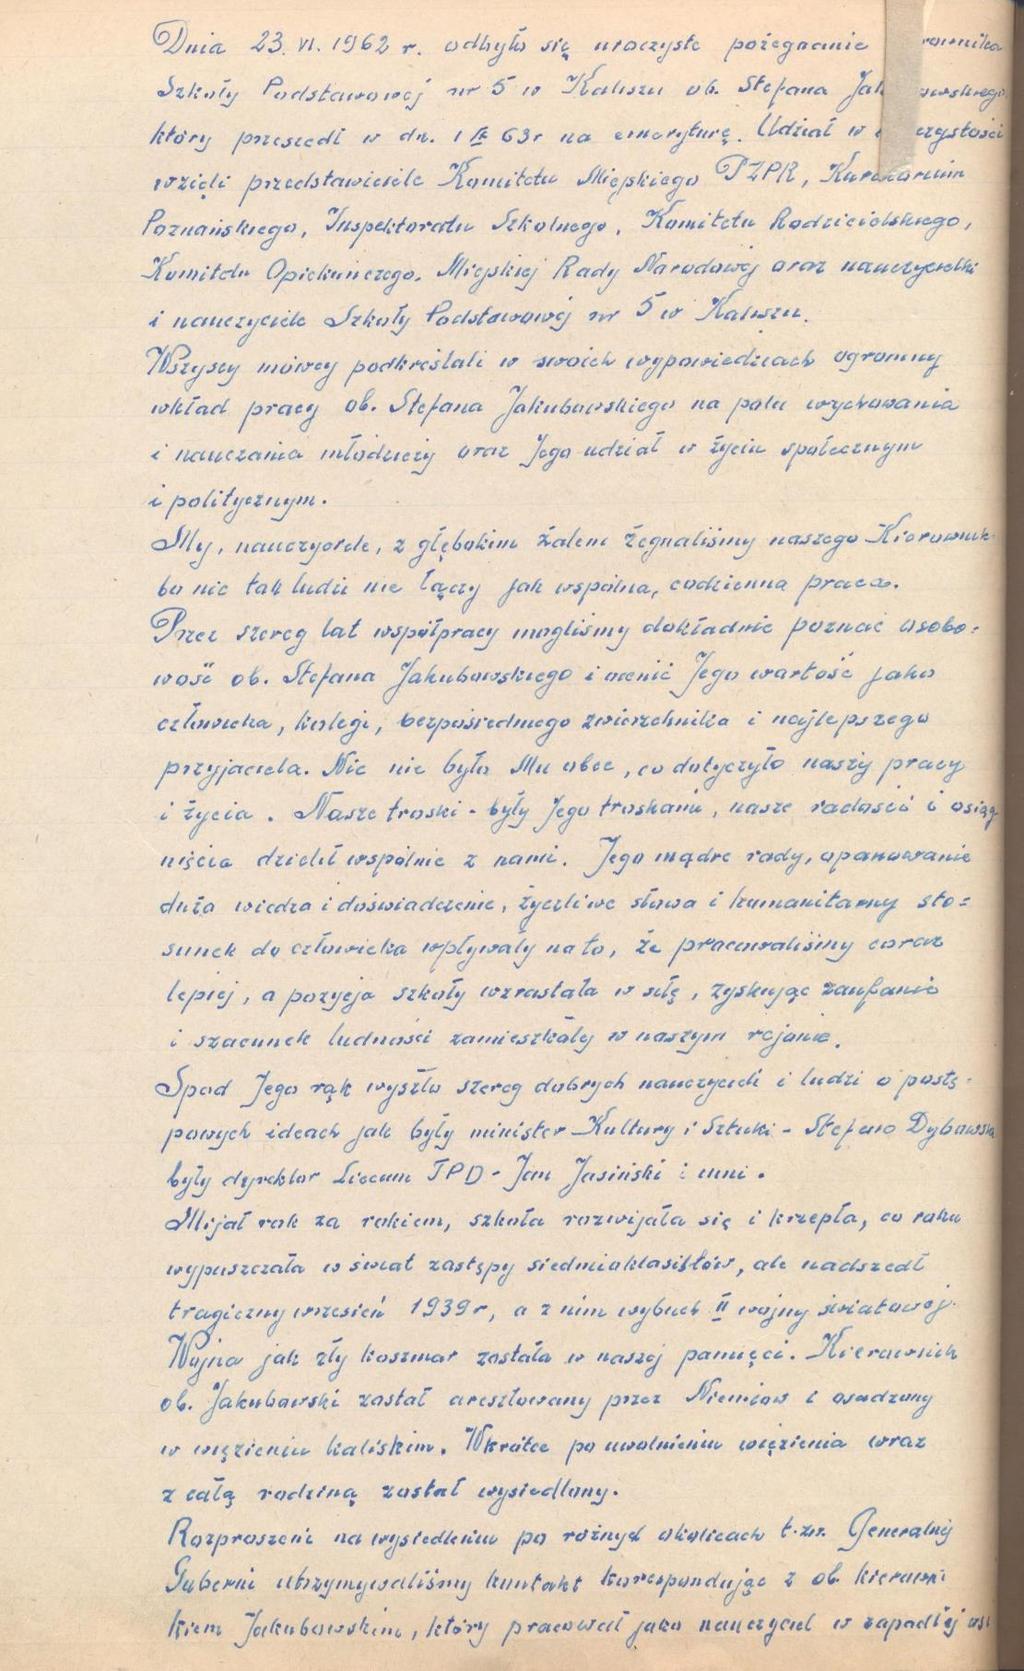 Dnia 23. VI. 1962 r. odbyło się uroczyste pożegnanie rownika
Szkoły Podstawowej nr 5 w Kaliszu ob. Stefana Jak owskiego
który przeszedł w dn. 1 IX 63 r na emeryturę. Udział w czystości
wzięli przedstawiciele Komitetu Miejskiego PZPR, Kuratorium
Poznańskiego, Inspektoratu Szkolnego, Komitetu Rodzicielskiego,
Komitetu Opiekuńczego, Miejskiej Rady Narodowej oraz nauczycielki
i nauczyciele Szkoły Podstawowej nr 5 w Kaliszu.
Wszyscy mówcy podkreślali w swoich wypowiedziach ogromny
wkład pracy ob. Stefana Jakubowskiego na polu wychowania
i nauczania młodzieży oraz Jego udział w życiu społecznym
i politycznym.
My, nauczyciele, z głębokim żalem żegnaliśmy naszego Kierownik
bo nic tak ludzi nie łączy jak wspólna, codzienna praca.
Przez szereg lat współpracy mogliśmy dokładnie poznać osobo=
wość ob. Stefana Jakubowskiego i ocenić Jego wartość jako
człowieka, kolegi, bezpośredniego zwierzchnika i najlepszego
przyjaciela. Nic nie było Mu obce, co dotyczyło naszej pracy
i życia. Nasze troski - były Jego troskami, nasze radości i osiąg
nięcia dzielił wspólnie z nami. Jego mądre rady, opanowanie
duża wiedza i doświadczenie, życzliwe słowa i humanitarny sto=
sunek do człowieka wpływały na to, że pracowaliśmy coraz
lepiej, a pozycja szkoły wzrastała w siłę, zyskując zaufanie
i szacunek ludności zamieszkałej w naszym rejonie.
Spod Jego rąk wyszło szereg dobrych nauczycieli i ludzi o postę=
powych ideach jak były minister Kultury i Sztuki - Stefan Dybowski
były dyrektor Liceum TPD - Jan Jasiński i inni.
Mijał rok za rokiem, szkoła rozwijała się i krzepła, co roku
wypuszczała w świat zastępy siedmioklasistów, ale nadszedł
tragiczny wrzesień 1939 r, a z nim wybuch II wojny światowej.
Wojna jak zły koszmar została w naszej pamięci. Kierownik
ob. Jakubowski został aresztowany przez Niemców i osadzony
w więzieniu kaliskim. Wkrótce po uwolnieniu więzienia wraz
z całą rodziną został wysiedlony.
Rozproszeni na wysiedleniu po różnych okolicach t.zw. Generalnej
Guberni utrzymywaliśmy kontakt korespondując z ob. kierowni
kiem Jakubowskim, który pracował jako nauczyciel w zapadłej wsi